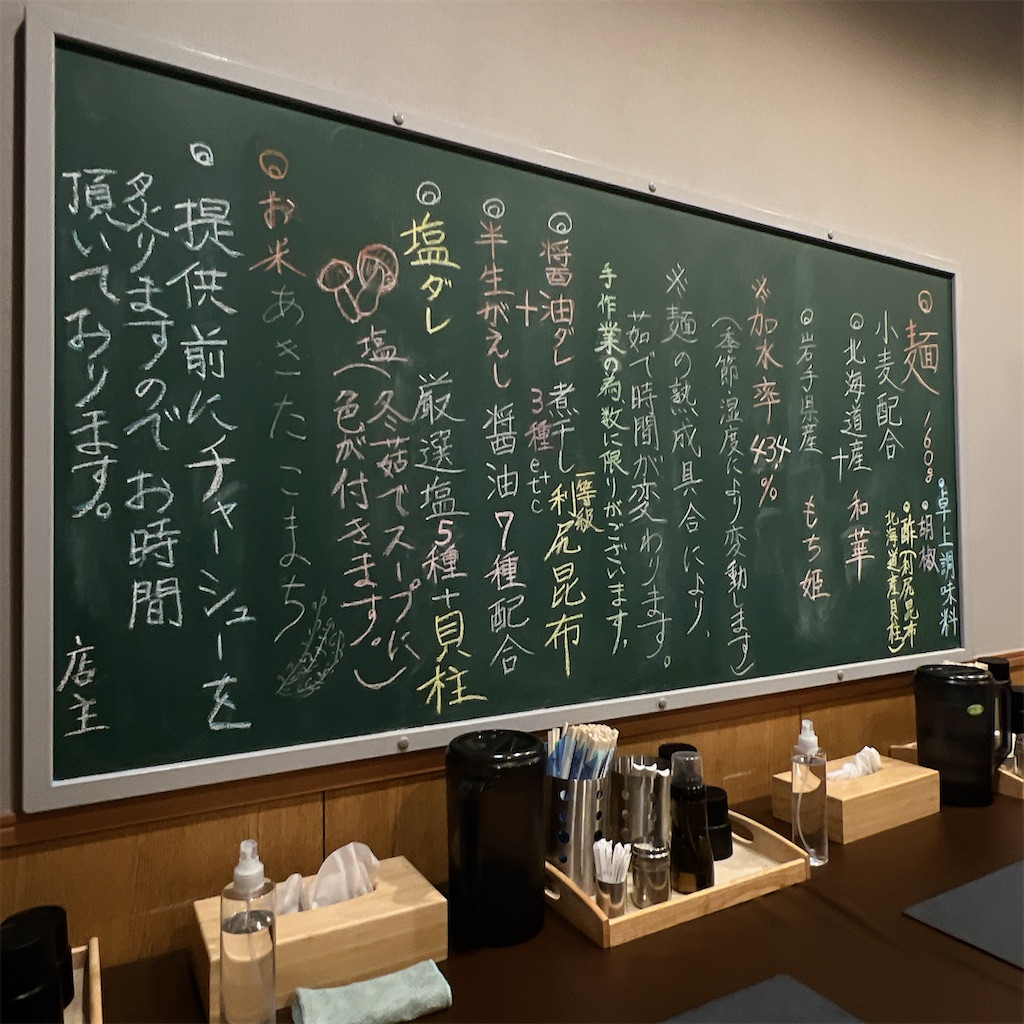 ◎麺 160g
小麦配合
◎北海道産 和華
+
◎岩手県産 もち姫
※加水率 43.4%
(季節湿度により変動します)
※麺の熟成具合により、
茹で時間が変わります。
手作業の為数に限りがございます。
◎醤油ダレ 煮干し 一等級 利尻昆布
+ 3種 etc
◎半生がえし 醤油7種配合
◎塩ダレ 厳選塩5種+貝柱
塩(冬菇でスープに
色が付きます。)
◎お米 あきたこまち
◎提供前にチャーシューを
炙りますのでお時間
頂いております。
店主
◎卓上調味料
◎胡椒
◎酢(利尻昆布
北海道産貝柱)